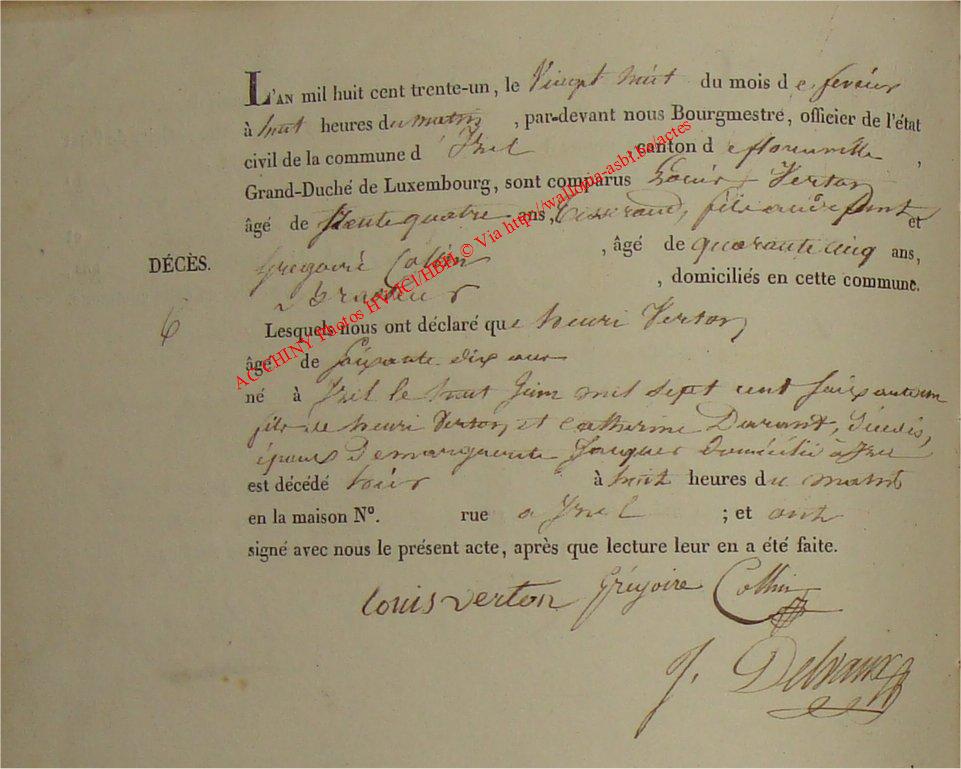 L'AN mil huit cent trente-un, le Vingt huit du mois de fevrier
à huit heures du matin, par-devant nous Bourgmestre, officier de l'état
civil de la commune d'Izel, canton de florenville,
Grand-Duché de Luxembourg, sont comparus Louis Verton
âgé de trente quatre ans, tisserand, fils au defunt et
DÉCÈS. Grégoire Collin, âgé de quarante cinq ans,
brasseur, domiciliés en cette commune.
6 Lesquels nous ont déclaré que henri Verton
âgé de soixante dix ans
né à Izel le huit Juin mil sept cent soixante un
fils de henri Verton et catherine Durant, décédés,
épaux de marguerite Jacques domicilié à Izel
est décédé à huit heures du matin
en la maison N°. rue a Izel ; et ont
signé avec nous le présent acte, après que lecture leur en a été faite.
Louis verton Grégoire Collin
J. Delvaux
ACCHINY Photos HV/ICI/HBL © Via http://wallonia-asbl.be/actes